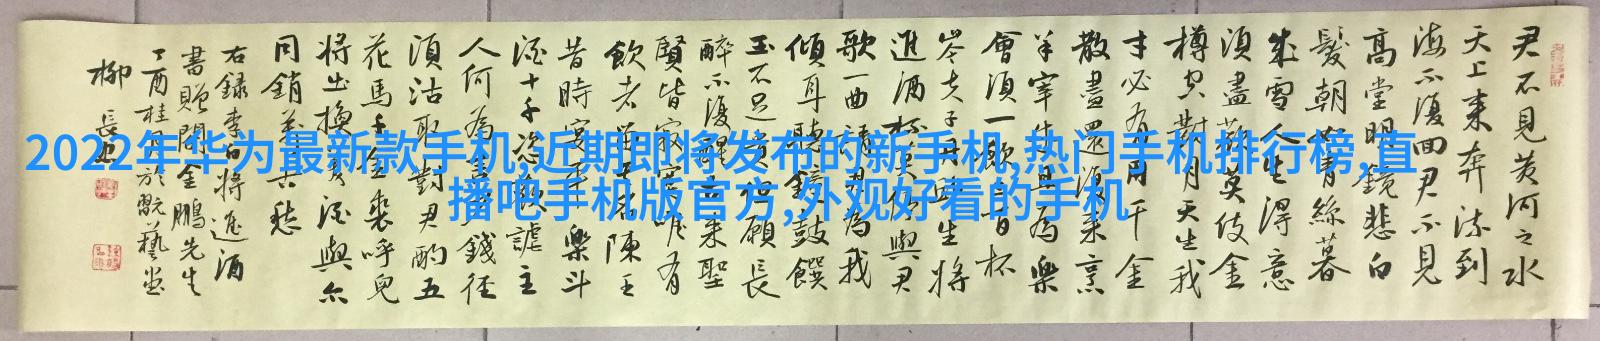 2022年华为最新款手机,近期即将发布的新手机,热门手机排行榜,直
播吧手机版官方,外观好看的手机
君不見黄河之水
天上来奔流到
海不復回君不見
高堂明鏡悲白
髮朝青絲暮
成雪人生得意
須盡歡莫使金
樽空對月天生我
才必有用千金
散盡還復来烹
羊宰牛且為樂
會須一飲三百杯
岑夫子丹丘生將
進酒杯莫停與君
歌一曲請君為我
傾耳聽鐘鼓饌
玉不足貴但願長
醉不復醒古来聖
賢皆寂寞唯有
飲者留其名陳王
昔時宴平樂斗
酒十千恣歡謔主
人何為言少錢徑
須沽取對君酌五
花馬千金裘呼兒
將出換美酒與尔
同銷萬古愁
右録李白將進酒
書贈金鵬先生
丁酉桂月於翫藝堂
柳長